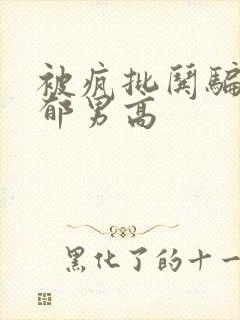 被疯批阴骗
郁男高
黑化了的十一